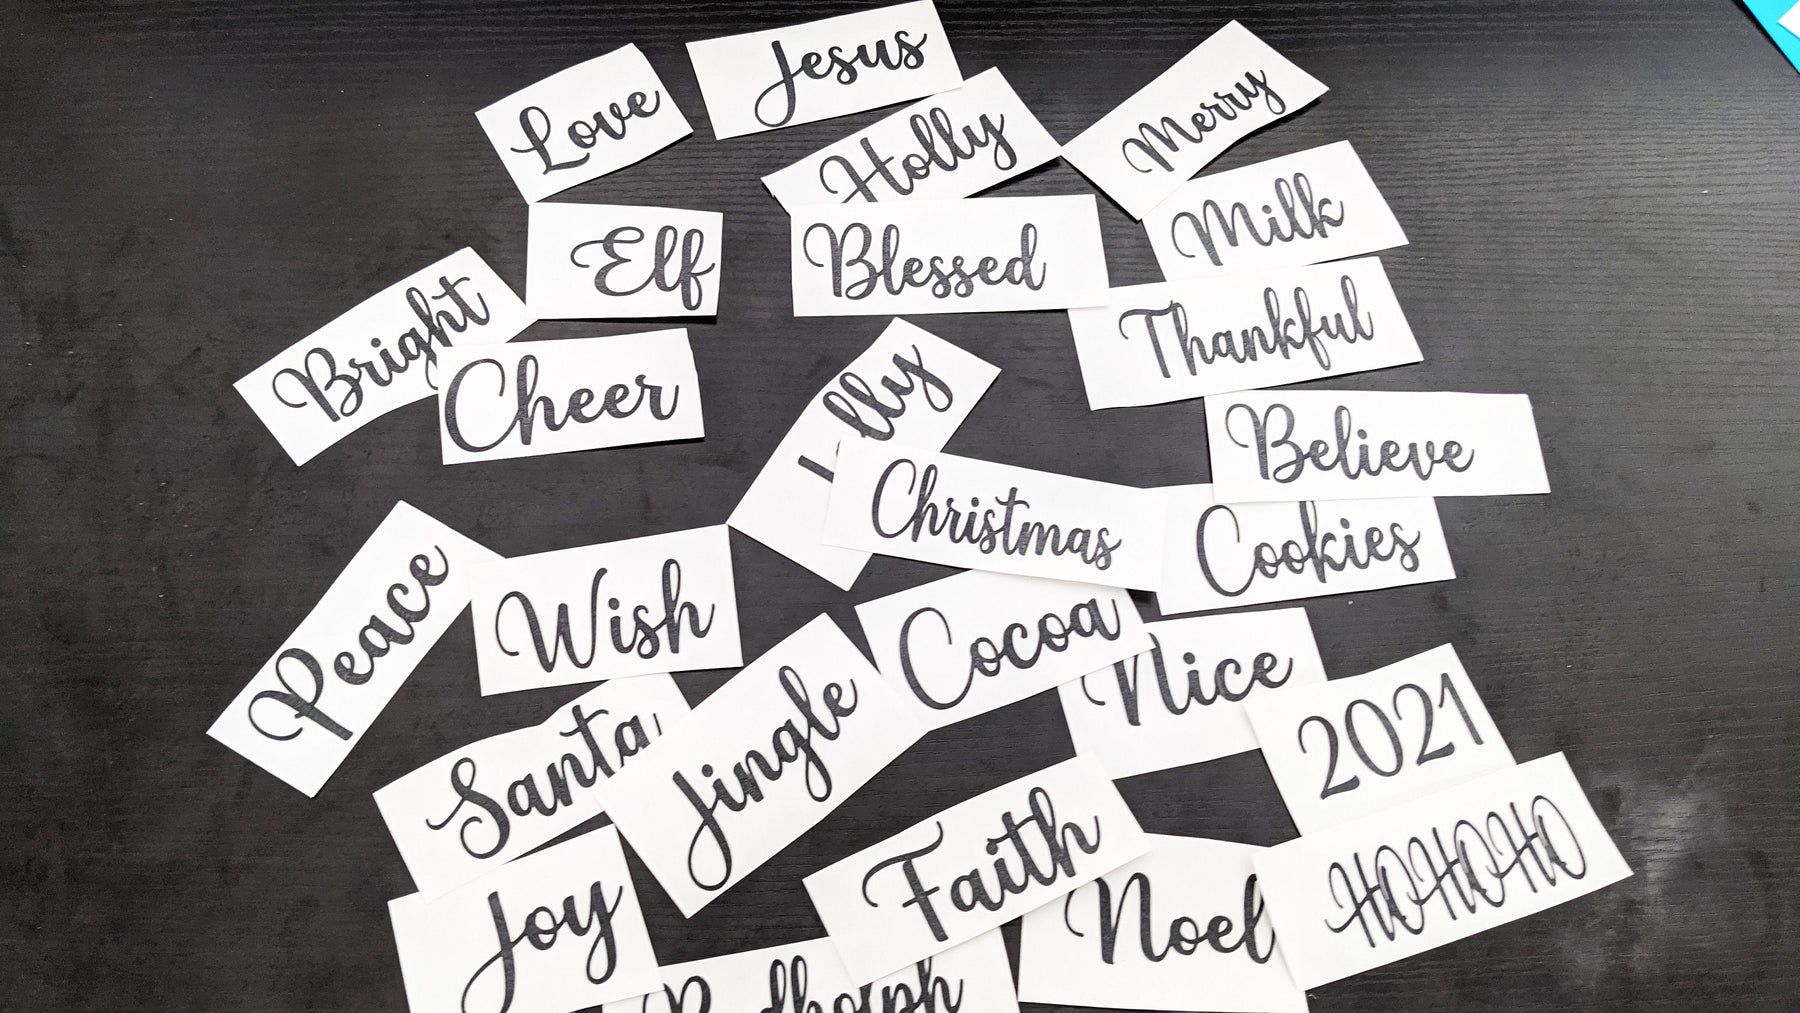 Jesus
Love
Merry
Holly
Milk
Elf
Blessed
Bright
Thankful
Cheer
lly
Believe
Christmas
Cookies
Peace
Wish
Cocoa
Nice
Santa
Jingle
2021
Faith
HOHOHO
Joy
Noel